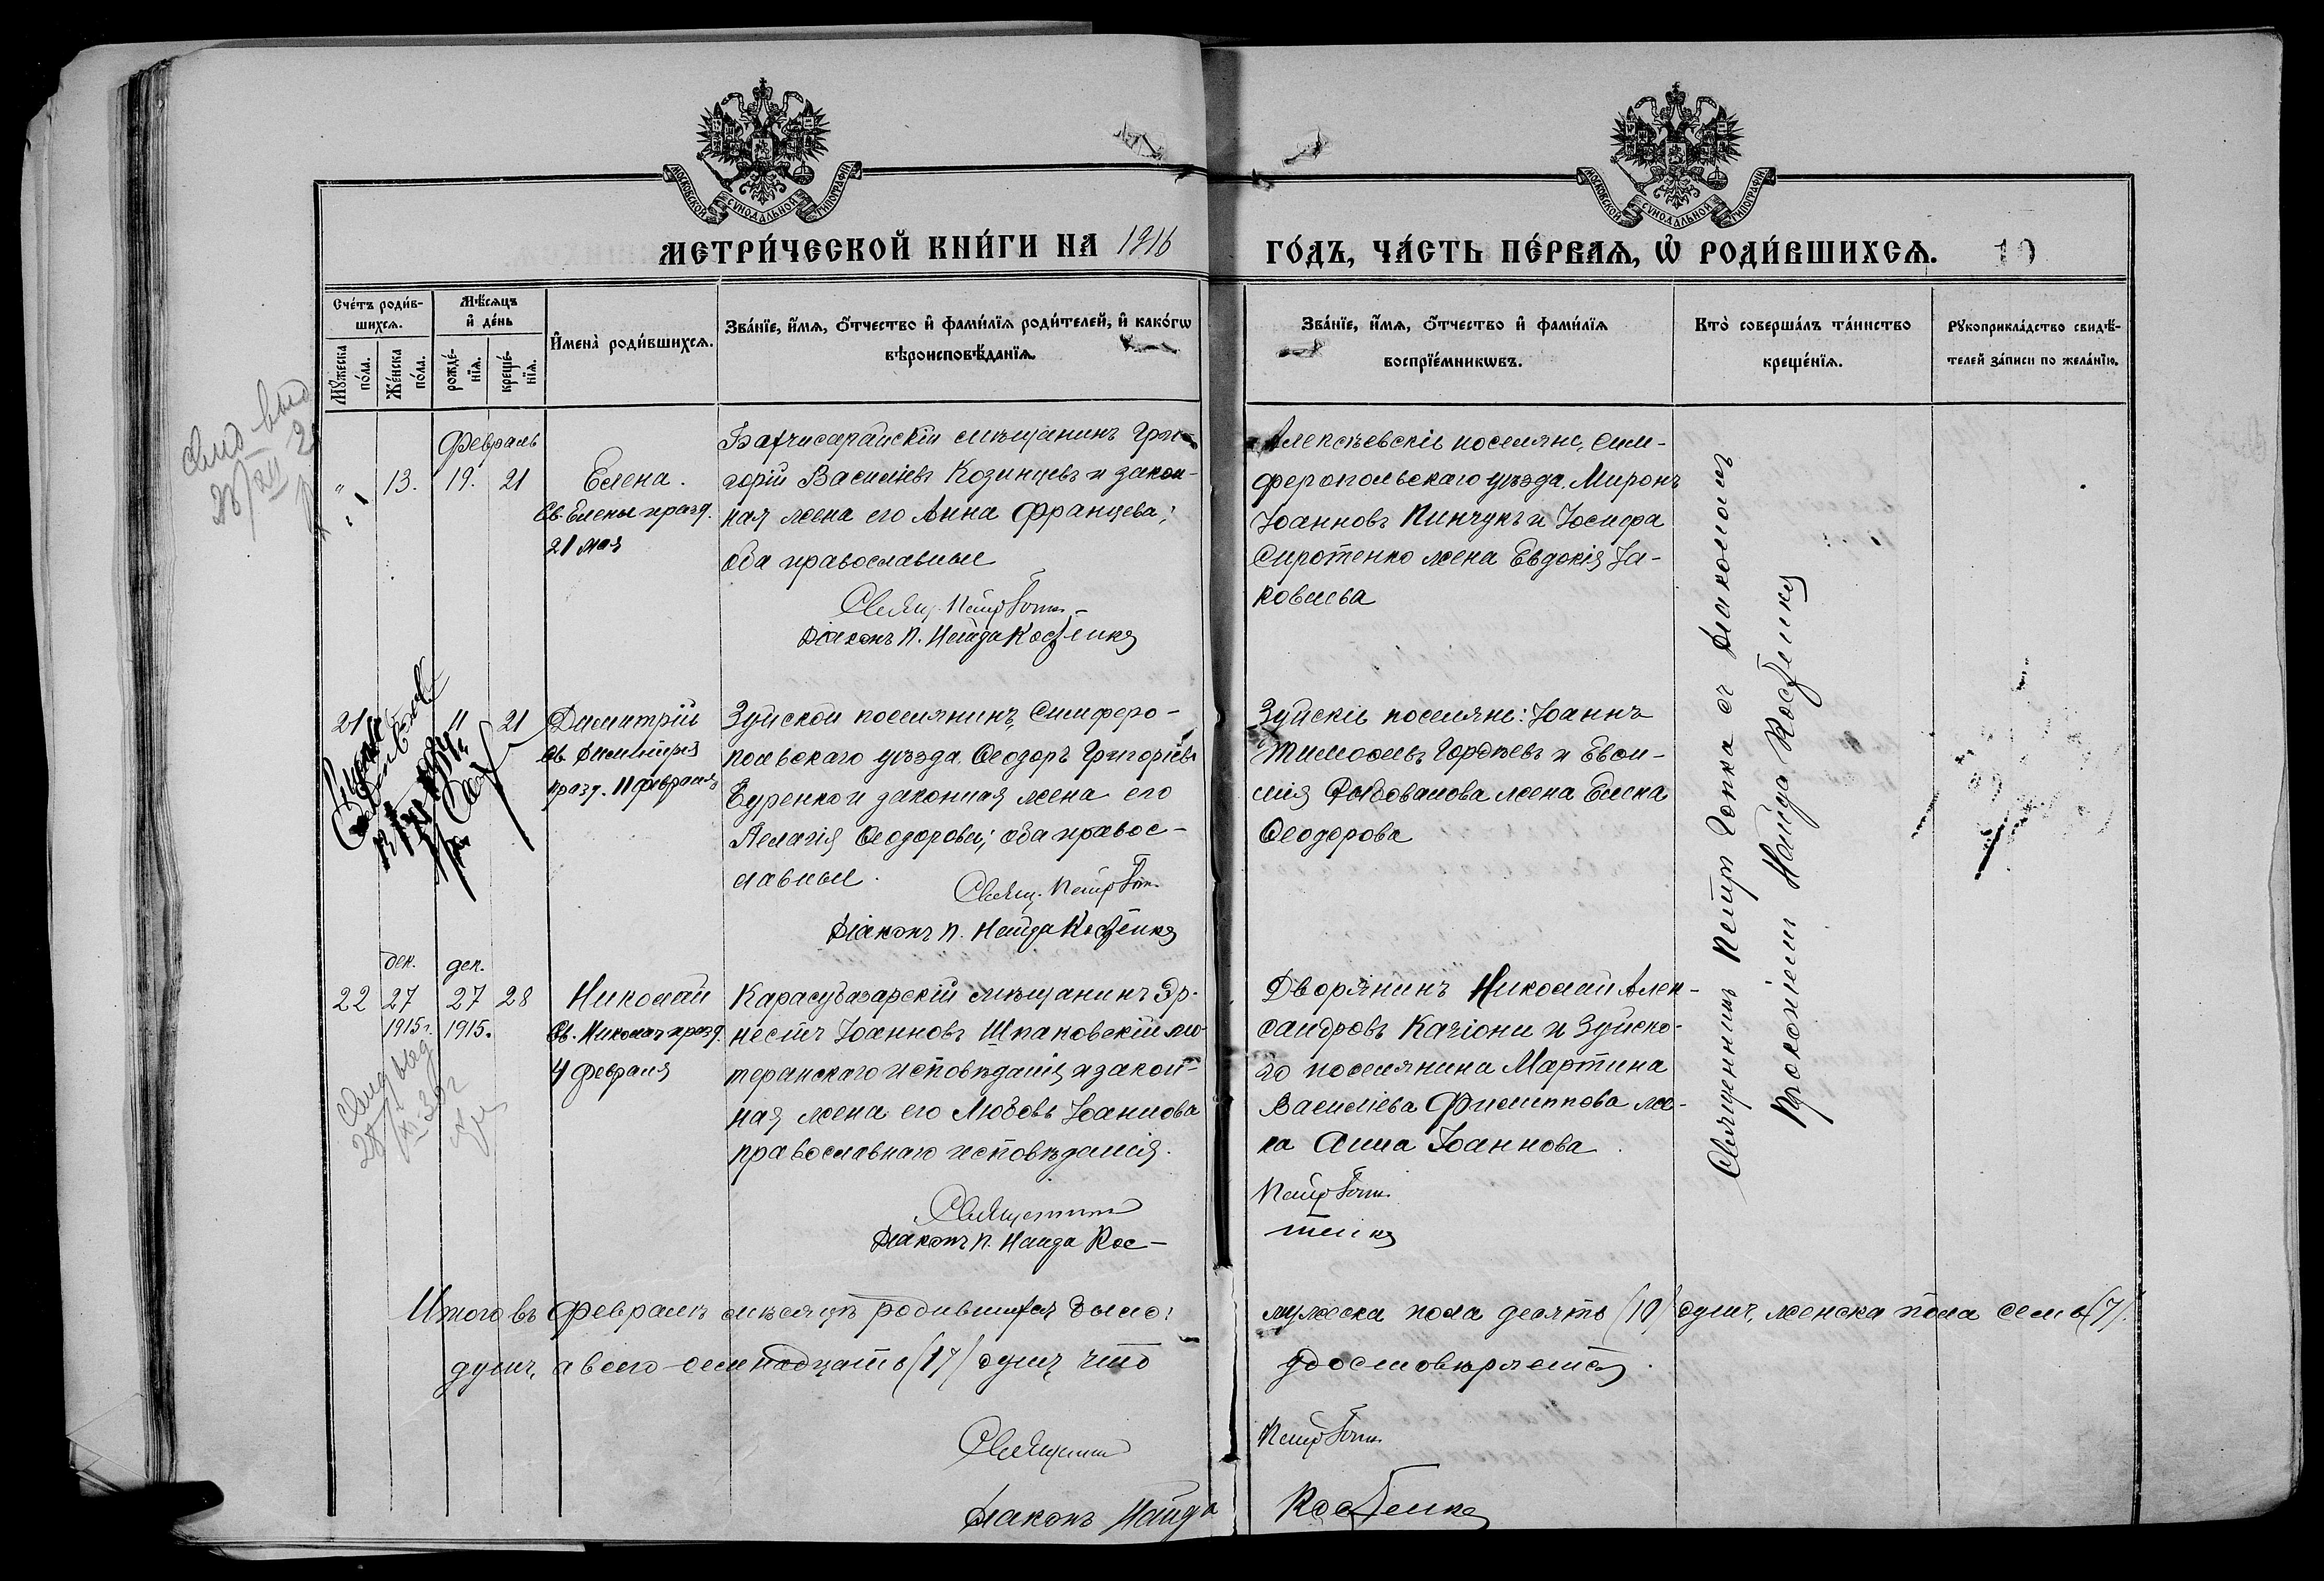 МОСКОВСКОЙ СѴНОДАЛЬНОЙ ТИПОГРАФІИ
МОСКОВСКОЙ СѴНОДАЛЬНОЙ ТИПОГРАФІИ
МЕТРИ́ЧЕСКОЙ КНИ́ГИ НА 1916
ГО́ДЪ, ЧА́СТЬ ПЕ́РВАѦ, Ѡ҆ РОДИ́ВШИХСѦ. 10
Сче́тъ роди́в-
шихсѧ.
Мꙋ́жеска по́ла.
Же́нска по́ла.
Мѣ́сѧцъ и҆ де́нь
рожде́-
нїѧ.
креще́-
нїѧ.
И҆мена̀ роди́вшихсѧ.
Зва́нїе, и҆́мѧ, ѻ҆́тчество и҆ фами́лїѧ роди́телей, и҆ како́гѡ
вѣроисповѣ́данїѧ.
Зва́нїе, и҆́мѧ, ѻ҆́тчество и҆ фами́лїѧ
воспрїе́мникѡвъ.
Кто̀ соверша́лъ та́инство
креще́нїѧ.
Рꙋкоприкла́дство свидѣ́-
телей за́писи по жела́нїю.
Февраль
" 13. 19. 21
Елена.
Св. Елены празд.
21 мая
Бахчисарайскій мѣщанинъ Гри-
горій Васильевъ Козинцевъ и закон-
ная жена его Анна Францева;
оба православные
Свящ. Петръ
Діаконъ П. Найда Костенко
Алексѣевскіе поселяне, Сим-
феропольскаго уѣзда, Миронъ
Іоанновъ Пинчукъ и Іосифа
Сиротенко жена Евдокія Іа-
ковлева
21 11 21
Димитрій
Св. Димитрія
празд. 11 февраля
Зуйской поселянинъ, Симферо-
польскаго уѣзда, Ѳеодоръ Григоріевъ
Буренко и законная жена его
Пелагія Ѳеодорова; оба правос-
лавные.
Свящ. Петръ
Діаконъ П. Найда Костенко
Зуйскіе поселяне: Іоаннъ
Тимоѳеевъ Гордѣевъ и Евѳи-
мія жена Елена
Ѳеодорова
дек. дек.
22 27 27 28
1915 г. 1915.
Николай
Св. Николая празд.
4 февраля
Карасубазарскій мѣщанинъ Эр-
нестъ Іоанновъ Шпаковскій лю-
теранскаго исповѣданія и закон-
ная жена его Любовь Іоаннова
православнаго исповѣданія.
Священникъ
Діаконъ П. Найда Кос-
Дворянинъ Николай Алек-
сандровъ Качіони и Зуйско-
го поселянина Мартина
Василіева Филиппова же-
на Анна Іоаннова.
Петръ
тенко
Священникъ Петръ съ діакономъ
Прокопіемъ Найда Костенко
Итого въ Февралѣ мѣсяцѣ родившихся было:
мужеска пола десять (10) душъ, женска пола семь (7)
душъ, а всего семнадцать (17) душъ, что
удостовѣряется.
Священникъ
Петръ
Діаконъ Найда
Костенко